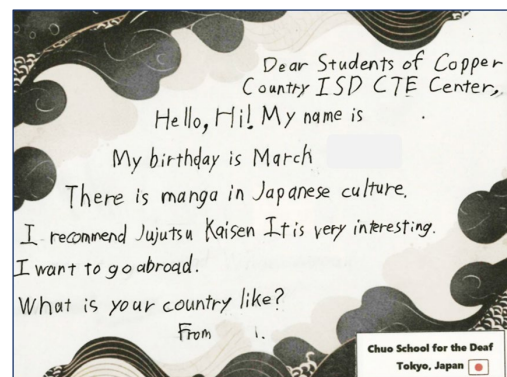 Dear Students of Copper
Country ISD CTE Center,
Hello, Hi! My name is
My birthday is March
There is manga in Japanese culture.
I recommend Jujutsu Kaisen It is very interesting.
I want to go abroad.
What is your country like?
From
Chuo School for the Deaf
Tokyo, Japan